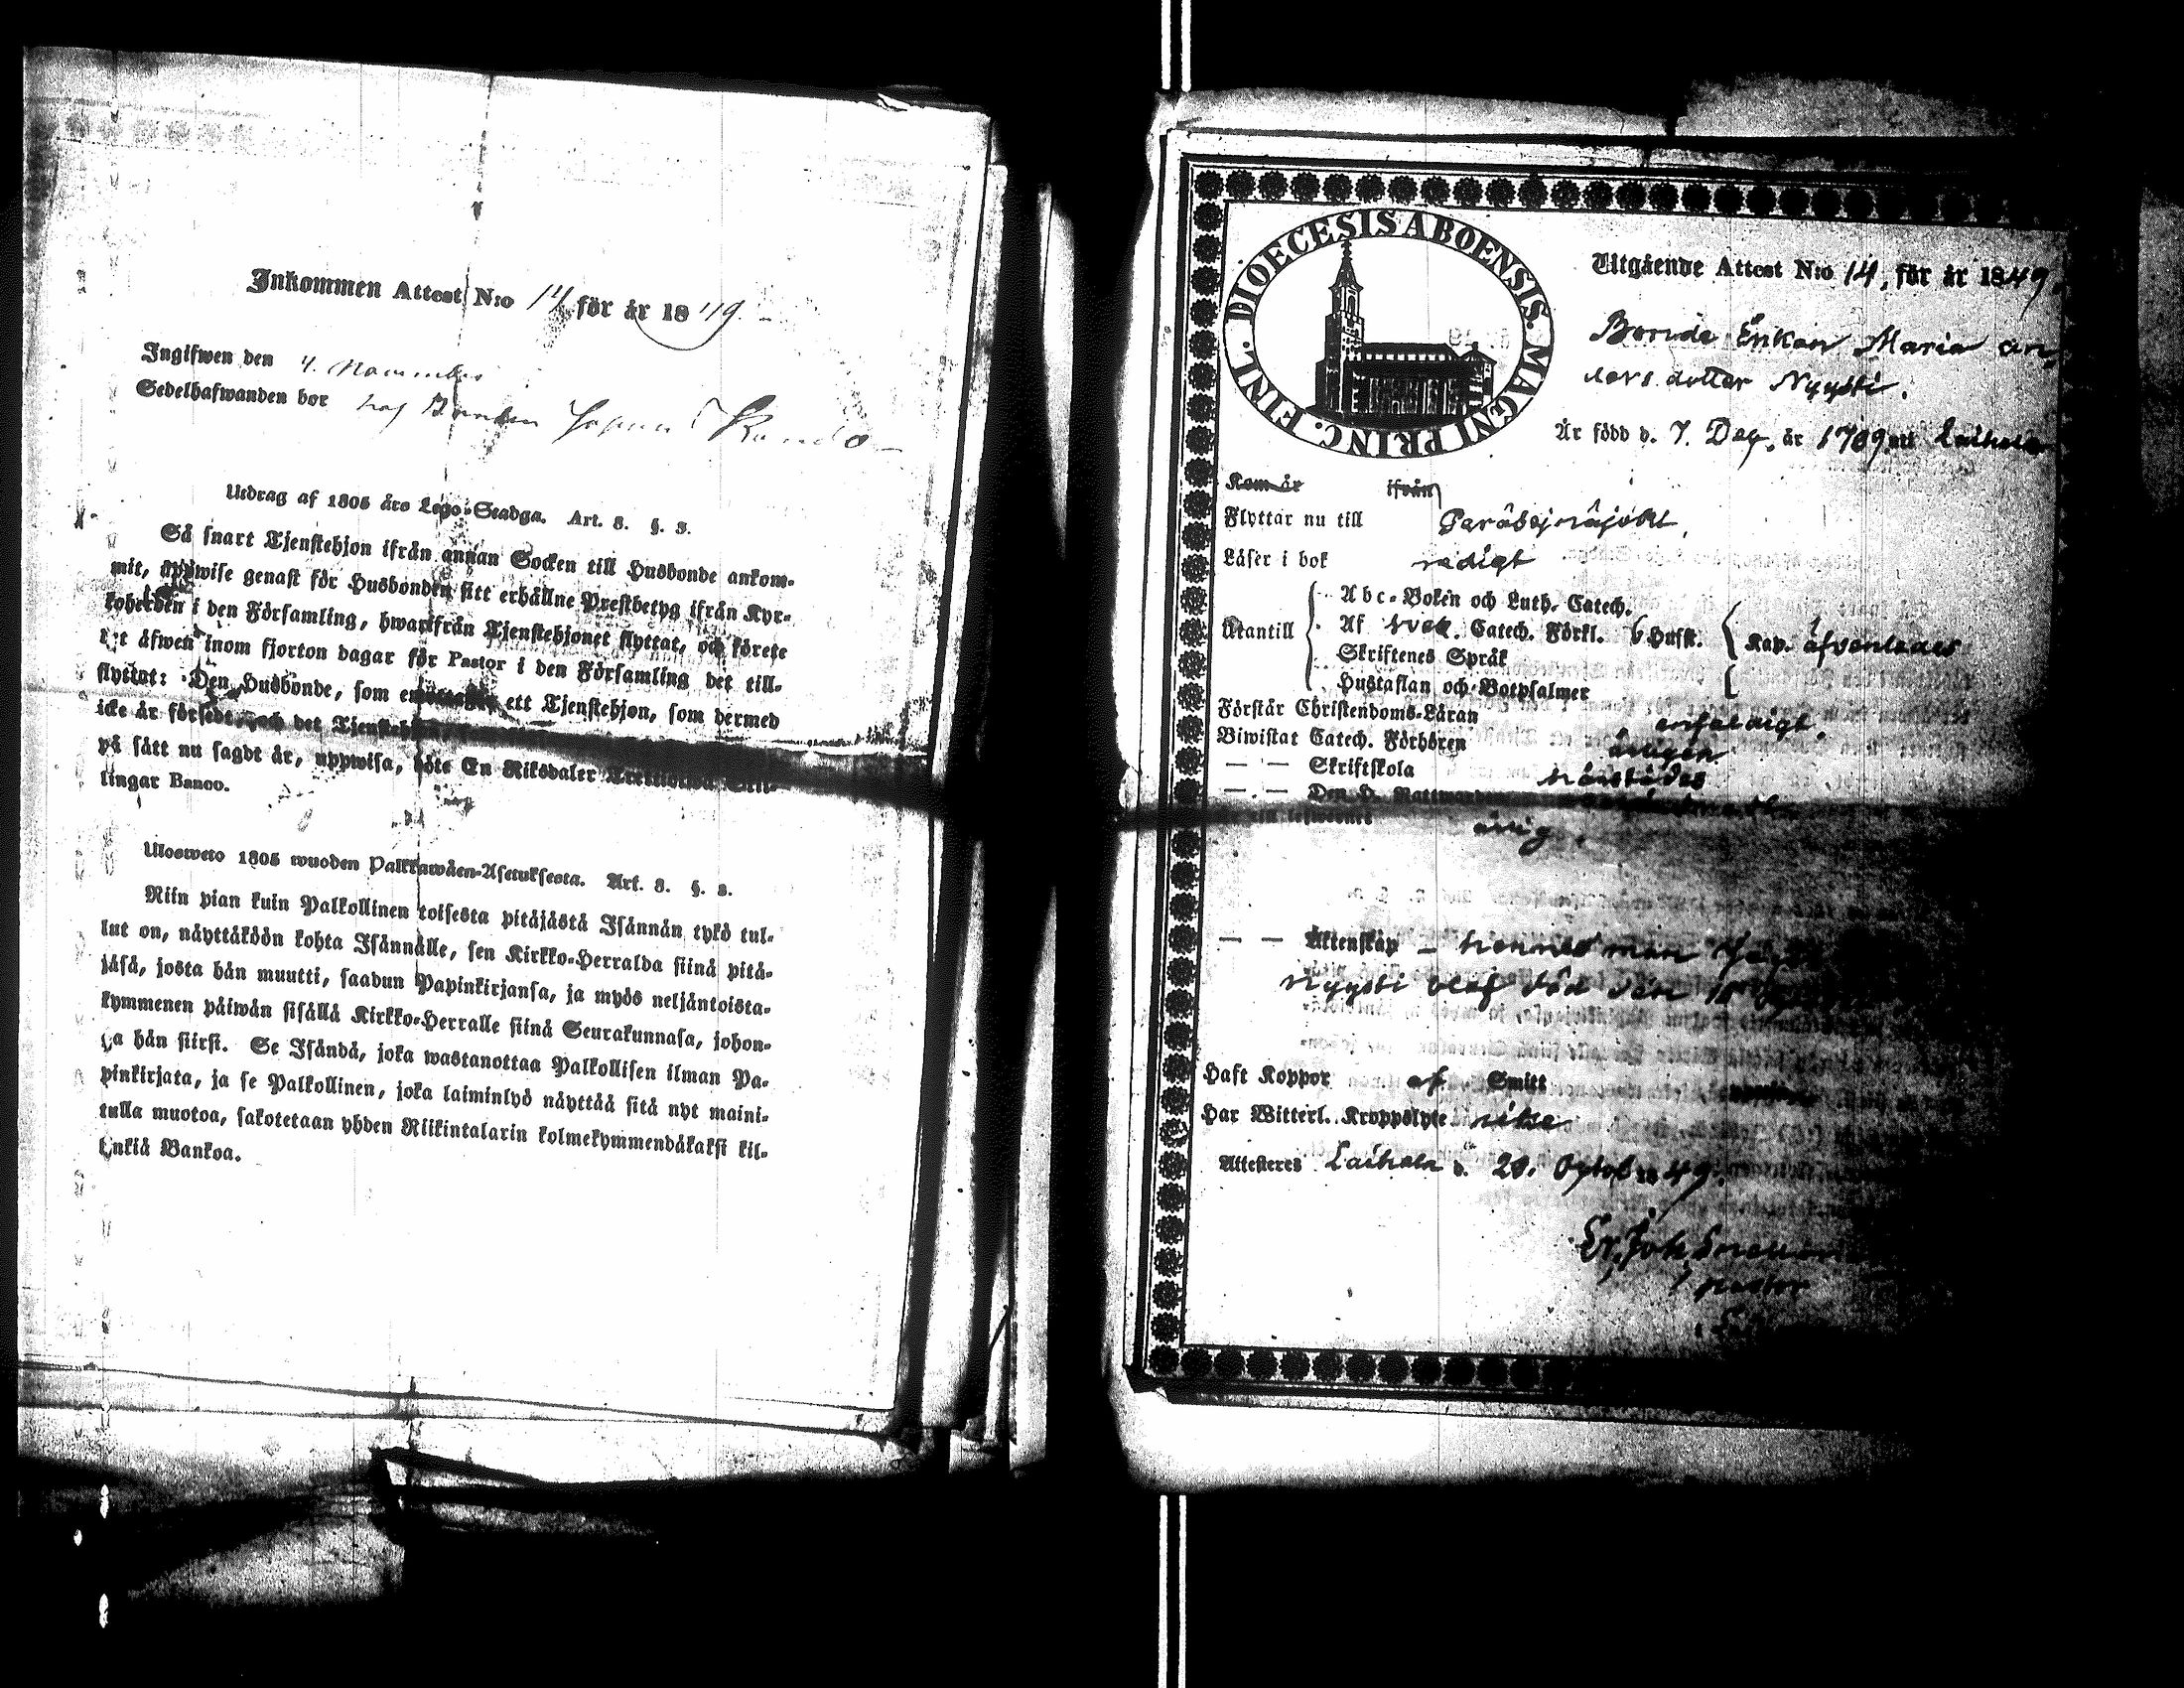 Inkommen Attest N:o 14 för år 1849.
Ingifwen den 4. November
Sedelhafwanden bor hos Bonden
Utdrag af 1805 års Lego-Stadga. Art. 8. §. 3.
Så snart Tjenstehjon ifrån annan Socken till Husbonde ankom-
mit, uppwise genast för Husbonden sitt erhållne Prestbetyg ifrån Kyr-
koherden i den Församling, hwarifrån Tjenstehjonet flyttat, och förete
det äfwen inom fjorton dagar för Pastor i den Församling det till-
flyttat: Den Husbonde, som emottager ett Tjenstehjon, som dermed
icke är försedt, och det Tjenstehjon,
på sätt nu sagdt är, uppwisa, böte En Riksdaler Trettiotwå Skil-
lingar Banco.
Ulosweto 1805 wuoden Palkkawäen-Asetuksesta. Art. 8. §. 3.
Niin pian kuin Palkollinen toisesta pitäjästä Isännän tykö tul-
lut on, näyttäköön kohta Isännälle, sen Kirkko-Herralda siinä pitä-
jäsä, josta hän muutti, saadun Papinkirjansa, ja myös neljäntoista-
kymmenen päiwän sisällä Kirkko-Herralle siinä Seurakunnasa, johon-
ga hän siirsi. Se Isändä, joka wastanottaa Palkollisen ilman Pa-
pinkirjata, ja se Palkollinen, joka laiminlyö näyttää sitä nyt maini-
tulla muotoa, sakotetaan yhden Riikintalarin kolmekymmendäkaksi kil-
lingiä Bankoa.
DIOECESIS ABOENSIS. MAGNI PRINC. FINL.
Utgående Attest N:o 14, för år 1849.
Bonde Enkan Maria An-
ders dotter Nyysti.
Är född d. 7. Dec. år 1789 uti Laihela
Kom år ifrån
Flyttar nu till
Läser i bok redigt
Utantill
Abc-Boken och Luth. Catech.
Af Catech. Förkl. Hufst. Kap. äfvenledes
Skriftenes Språk
Hustaflan och Botpsalmer
Förstår Christendoms-Läran enfaldigt.
Biwistat Catech. Förhören årligen
— — Skriftskola härstädes
— — Den H. Nattwarden
till lefwernet ärlig.
— — Äktenskap — hennes man
Nyysti Olof död den
Haft Koppor af Smitt
Har Witterl. Kroppslyte icke
Attesteres Laihela d. 20. Octob. 1849.
Er. Joh.
pastor